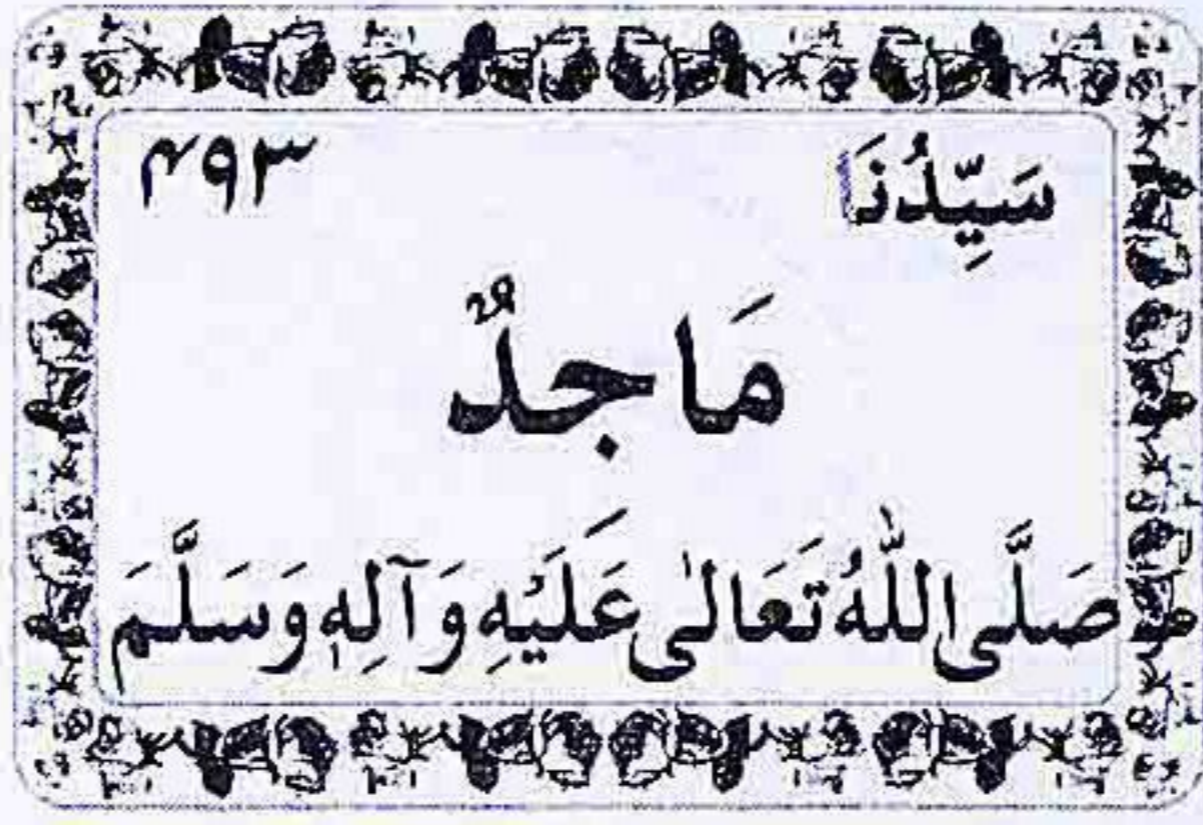 سَيِّدُنَا ۴۹۳
مَاجِدٌ
صَلَّى اللّٰهُ تَعَالٰى عَلَيْهِ وَآلِهٖ وَسَلَّمَ